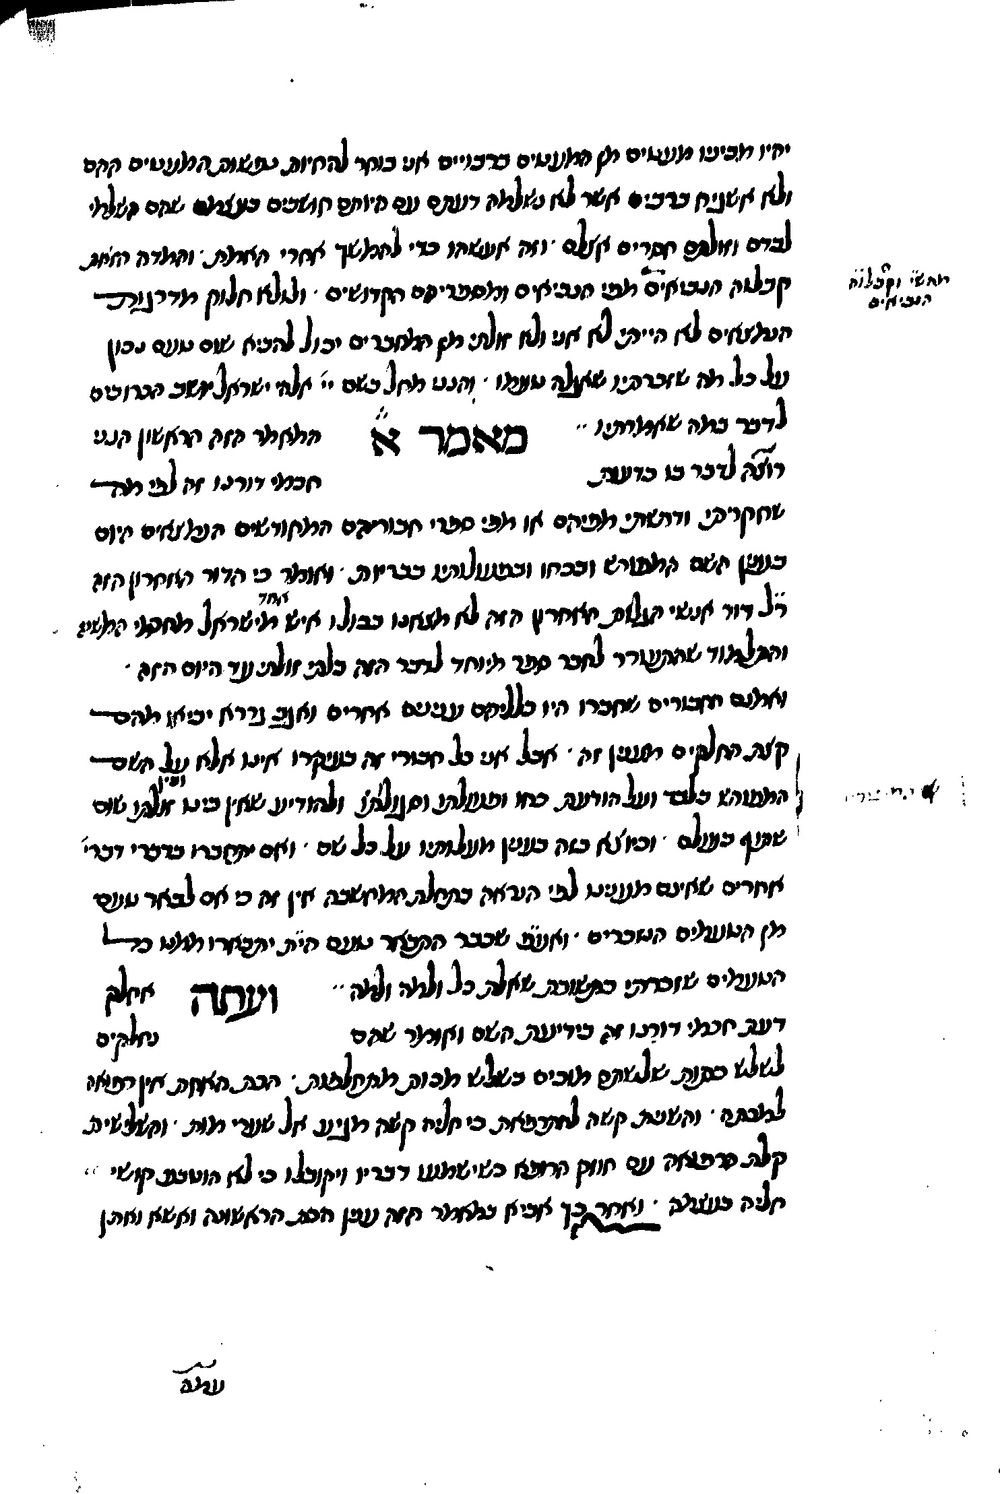 יהיו מבינינו מועטים מן המעטים ברבויים אני בוחר להחיות נפשות המועטים ההם
ולא אשגיח ברבים אשר לא נשלמה דעתם עם היותם חושבים בעצמם שהם השלמי
לבדם וזולתם חסרים אצלם · וזה אעשהו כדי להמשך אחרי האמת · והמדה הזאת
קבלוה הנביאים מפי הנביאים ומספריהם הקדושים · ולולא חלוק מדרגות
הנמצאים לא הייתי לא אני ולא זולתי מן המחברים יכול להביא שום טעם נכון
על כל מה שזכרתיו שאלה טעמו · והנני מחל בשם יי׳ אלהי ישראל יושב הכרובים
לדבר במה שאמרתיו ״ מאמר א המאמר הזה הראשון הנני
רוצה לדבר בו בדעות חכמי דורנו זה לפי מה
שחקרתי ודרשתי מפיהם או מפי ספרי חבוריהם המחודשים הנמצאים היום
בענין השם המפורש ובכחו ובפעולותיו בבריות · ואומר כי הדור האחרון הזה
ר״ל דור אנשי הגלות האחרון הזה לא מצאנו בכולו איש אחד מישראל מחכמי המשנה
והתלמוד שהתעורר לחבר ספר מיוחד לדבר הזה בלתי זולתי עד היום הזה ·
ואמנם חבורים שחברו היו כלליהם ענינים אחרים ואגב גררא יביאו מהם
קצת החלקים מענין זה · אבל אני כל חבורי זה בעיקרו אינו אלא על השם
המפורש בלבד ועל הודעת כחו ופעולתו וסגולתו ולהודיע שאין בינו ובין זולתו שום
שתוף בעולם · וכיוצא בזה בענין מעלותיו על כל שם · ואם יתחברו בדברי דברי׳
אחרים שאינם מענינו לפי הנראה בתחלת המחשבה אין זה כי אם לבאר טעם
מן הטעמים הנזכרים · שכבר התבאר טעם יתבארו ממנו כל
הטעמים שזכרתי בתשובת שאלת כל ולמה ולמה ״ ועתה אחלק
דעת חכמי דורנו זה בידיעת השם ואומר שהם נחלקים
לשלש כתות שלשתם מוכים בשלש מכות מתחלפות · הכת האחת אין רפואה
למכתה · והשנית קשה להתרפאת כי חליה קשה מגיע אל שערי מות · והשלישית
קלת הרפואה עם חוזק הרופא כשישמעו דבריו ויקובלו כי לא הוטבע קושי ״
חליה בעצמה · ואחר כן אביא במאמר הזה ענין הכת הראשונה ואשא ואתן
הנביאים